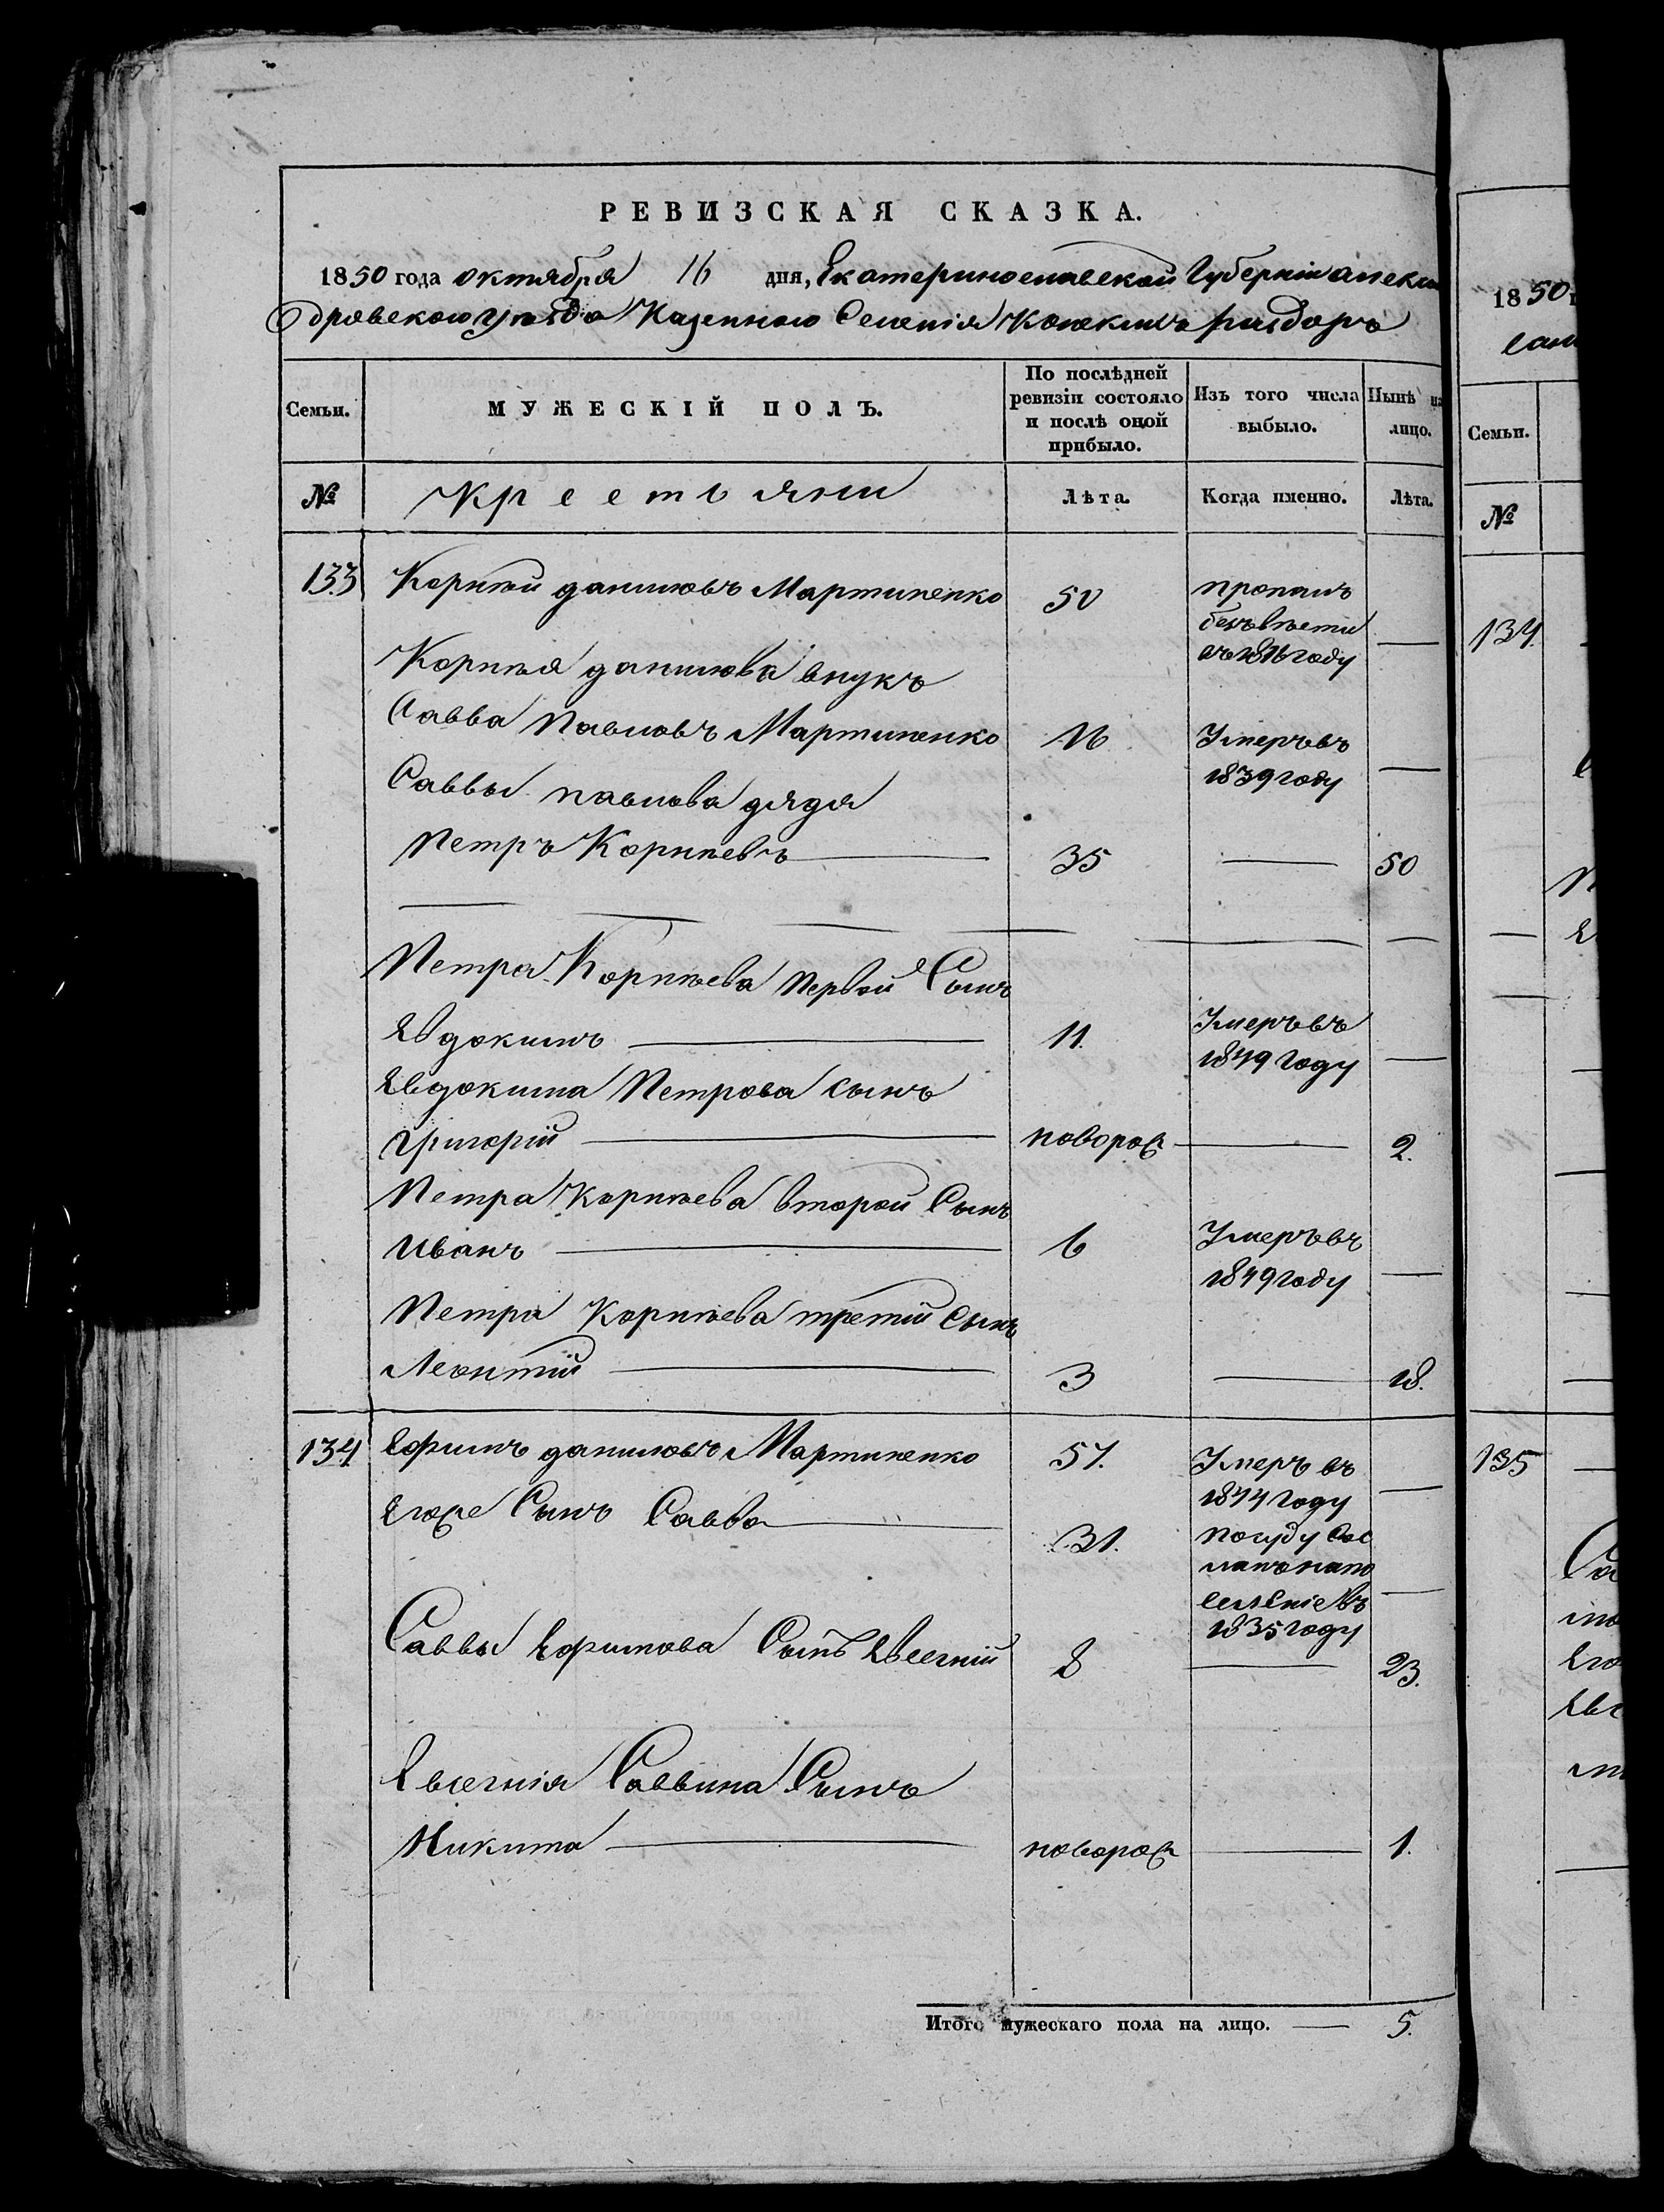 РЕВИЗСКАЯ СКАЗКА.
1850 года октября 16 дня, Екатеринославской Губернїи алекса
дровского уѣзда Казенного Селенїя Конскихъ раздоръ
Семьи.
МУЖЕСКІЙ ПОЛЪ.
По послѣдней ревизіи состояло и послѣ оной прибыло.
Изъ того числа выбыло.
Нынѣ на лицо.
№ Крестьяни Лѣта. Когда именно. Лѣта.
133 Корнѣй даниловъ Мартиненко 50 пропалъ
безъвѣсти
въ году —
Корнѣя данилова внукъ
Савва Павловъ Мартиненко 16 Умеръ въ
1839 году —
Саввы павлова дядя
Петръ Корнѣевъ — 35 — 50
Петра Корнѣева первой Сынъ
Евдокимъ — 11. Умеръ въ
1849 году —
Евдокима Петрова сынъ
Григорїй — новорож — 2.
Петра Корнѣева второй Сынъ
Иванъ — 6 Умеръ въ
1849 году —
Петра Корнѣева третїй Сынъ
Леонтїй — 3 — 18.
134 Ефимъ даниловъ Мартиненко 57. Умеръ въ
1844 году —
Егоже Сынъ Савва — 31. посуду сос
ланъ напо
селенїе въ
1835 году —
Саввы Ефимова Сынъ Евсегнїй 8 — 23.
Евсегнїя Саввина Сынъ
Никита — новорож — 1.
Итого мужескаго пола на лицо. — 5.
1850
Семьи.
№
134.
135